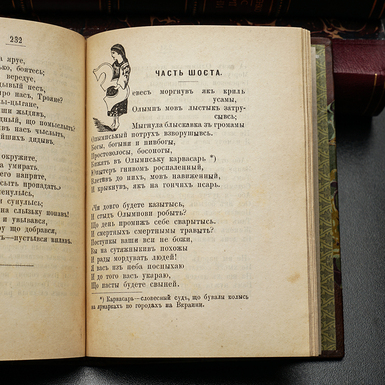 232
яруе,
ько, боитесь;
вередуе,
дывый песъ,
ро насъ, Трояне?
зы-цыгане,
и жыдивъ,
дный, помысльтъ)
мъ насъ чыслытъ,
тейшихъ дядывъ.
окружите,
умирать.
насъ пропадать.
сунулысь;
сунулысь;
на слызьку попавъ!
и увывався,
ру що добрався,
ъ—пустывся вплавъ.
ЧАСТЬ ШОСТА.
Зевесъ моргнувъ якъ криль
усамы,
Олымпъ мовъ лыстыкъ затру-
сывсь;
Мыгнула блыскавка зъ громамы
Олымпський потрухъ взворушывсь.
Босы, богыни и пивбогы,
Простоволосы, босоногы,
Бижать въ Олымпську карвасарь *)
Юпытеръ гнивомъ роспаленный,
Влетивъ до нихъ, мовъ навиженный,
И крыкнувъ, якъ на гончихъ псарь.
Чи довго будете казытысь,
И стыдъ Олымпови робыть?
Що день промижъ себе сварытысь,
И смертныхъ смертнымы травыть?
Поступкы ваши вси не божи,
Вы на сутяжныкивъ похожы
И рады мордувать людей!
Я васъ изъ неба поспыхаю
И до того васъ укараю,
Що пасты будете свыней.
*) Карвасаръ—словесный судъ, що бувалы колысь
на ярмаркахъ по городахъ на Вкраини.